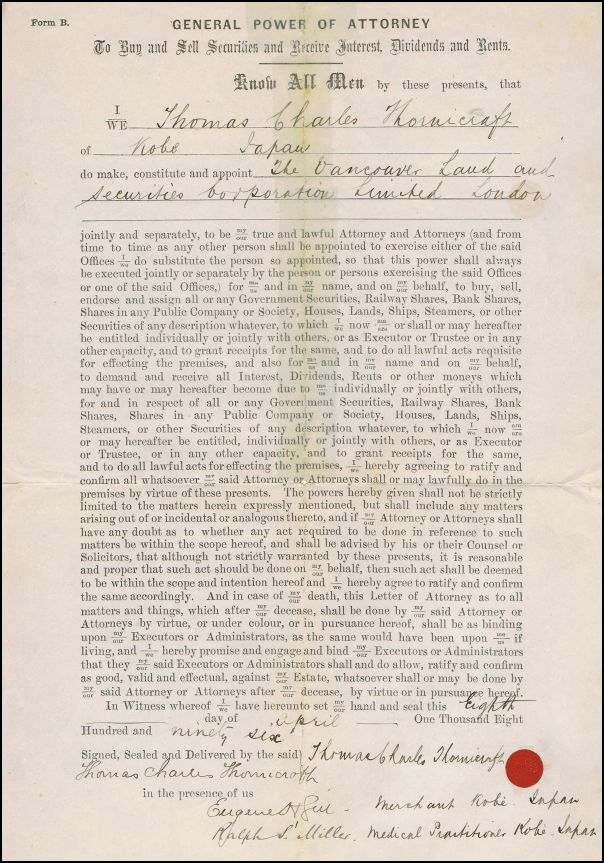 Form B.
GENERAL POWER OF ATTORNEY
To Buy and Sell Securities and Receive Interest, Dividends and Rents.
Know All Men by these presents, that
I/WE Thomas Charles Thornicraft
of Kobe Japan
do make, constitute and appoint The Vancouver Land and
Securities Corporation Limited London
jointly and separately, to be my/our true and lawful Attorney and Attorneys (and from
time to time as any other person shall be appointed to exercise either of the said
Offices I/we do substitute the person so appointed, so that this power shall always
be executed jointly or separately by the person or persons exercising the said Offices
or one of the said Offices,) for me/us and in my/our name, and on my/our behalf, to buy, sell,
endorse and assign all or any Government Securities, Railway Shares, Bank Shares,
Shares in any Public Company or Society, Houses, Lands, Ships, Steamers, or other
Securities of any description whatever, to which I/we now am/are or shall or may hereafter
be entitled individually or jointly with others, or as Executor or Trustee or in any
other capacity, and to grant receipts for the same, and to do all lawful acts requisite
for effecting the premises, and also for me/us and in my/our name and on my/our behalf,
to demand and receive all Interest, Dividends, Rents or other moneys which
may have or may hereafter become due to me/us individually or jointly with others,
for and in respect of all or any Government Securities, Railway Shares, Bank
Shares, Shares in any Public Company or Society, Houses, Lands, Ships,
Steamers, or other Securities of any description whatever, to which I/we now am/are
or may hereafter be entitled, individually or jointly with others, or as Executor
or Trustee, or in any other capacity, and to grant receipts for the same,
and to do all lawful acts for effecting the premises, I/we hereby agreeing to ratify and
confirm all whatsoever my/our said Attorney or Attorneys shall or may lawfully do in the
premises by virtue of these presents. The powers hereby given shall not be strictly
limited to the matters herein expressly mentioned, but shall include any matters
arising out of or incidental or analogous thereto, and if my/our Attorney or Attorneys shall
have any doubt as to whether any act required to be done in reference to such
matters be within the scope hereof, and shall be advised by his or their Counsel or
Solicitors, that although not strictly warranted by these presents, it is reasonable
and proper that such act should be done on my/our behalf, then such act shall be deemed
to be within the scope and intention hereof and I/we hereby agree to ratify and confirm
the same accordingly. And in case of my/our death, this Letter of Attorney as to all
matters and things, which after my/our decease, shall be done by my/our said Attorney or
Attorneys by virtue, or under colour, or in pursuance hereof, shall be as binding
upon my/our Executors or Administrators, as the same would have been upon me/us if
living, and I/we hereby promise and engage and bind my/our Executors or Administrators
that they my/our said Executors or Administrators shall and do allow, ratify and confirm
as good, valid and effectual, against my/our Estate, whatsoever shall or may be done by
my/our said Attorney or Attorneys after my/our decease, by virtue or in pursuance hereof.
In Witness whereof I/we have hereunto set my/our hand and seal this Eighth
day of April One Thousand Eight
Hundred and ninety six
Signed, Sealed and Delivered by the said Thomas Charles Thornicraft
Thomas Charles Thornicroft
in the presence of us
Eugene Gill - Merchant Kobe Japan
Ralph S. Miller. Medical Practitioner Kobe Japan